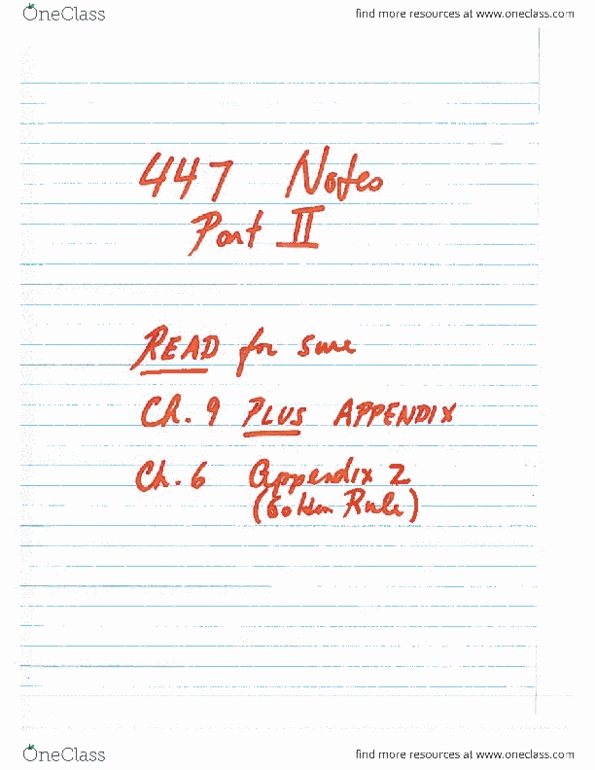 OneClass find more resources at www.oneclass.com
447 Notes
Part II
READ for sure
Ch. 9 PLUS APPENDIX
Ch. 6 Appendix 2
(Golden Rule)
OneClass find more resources at www.oneclass.com